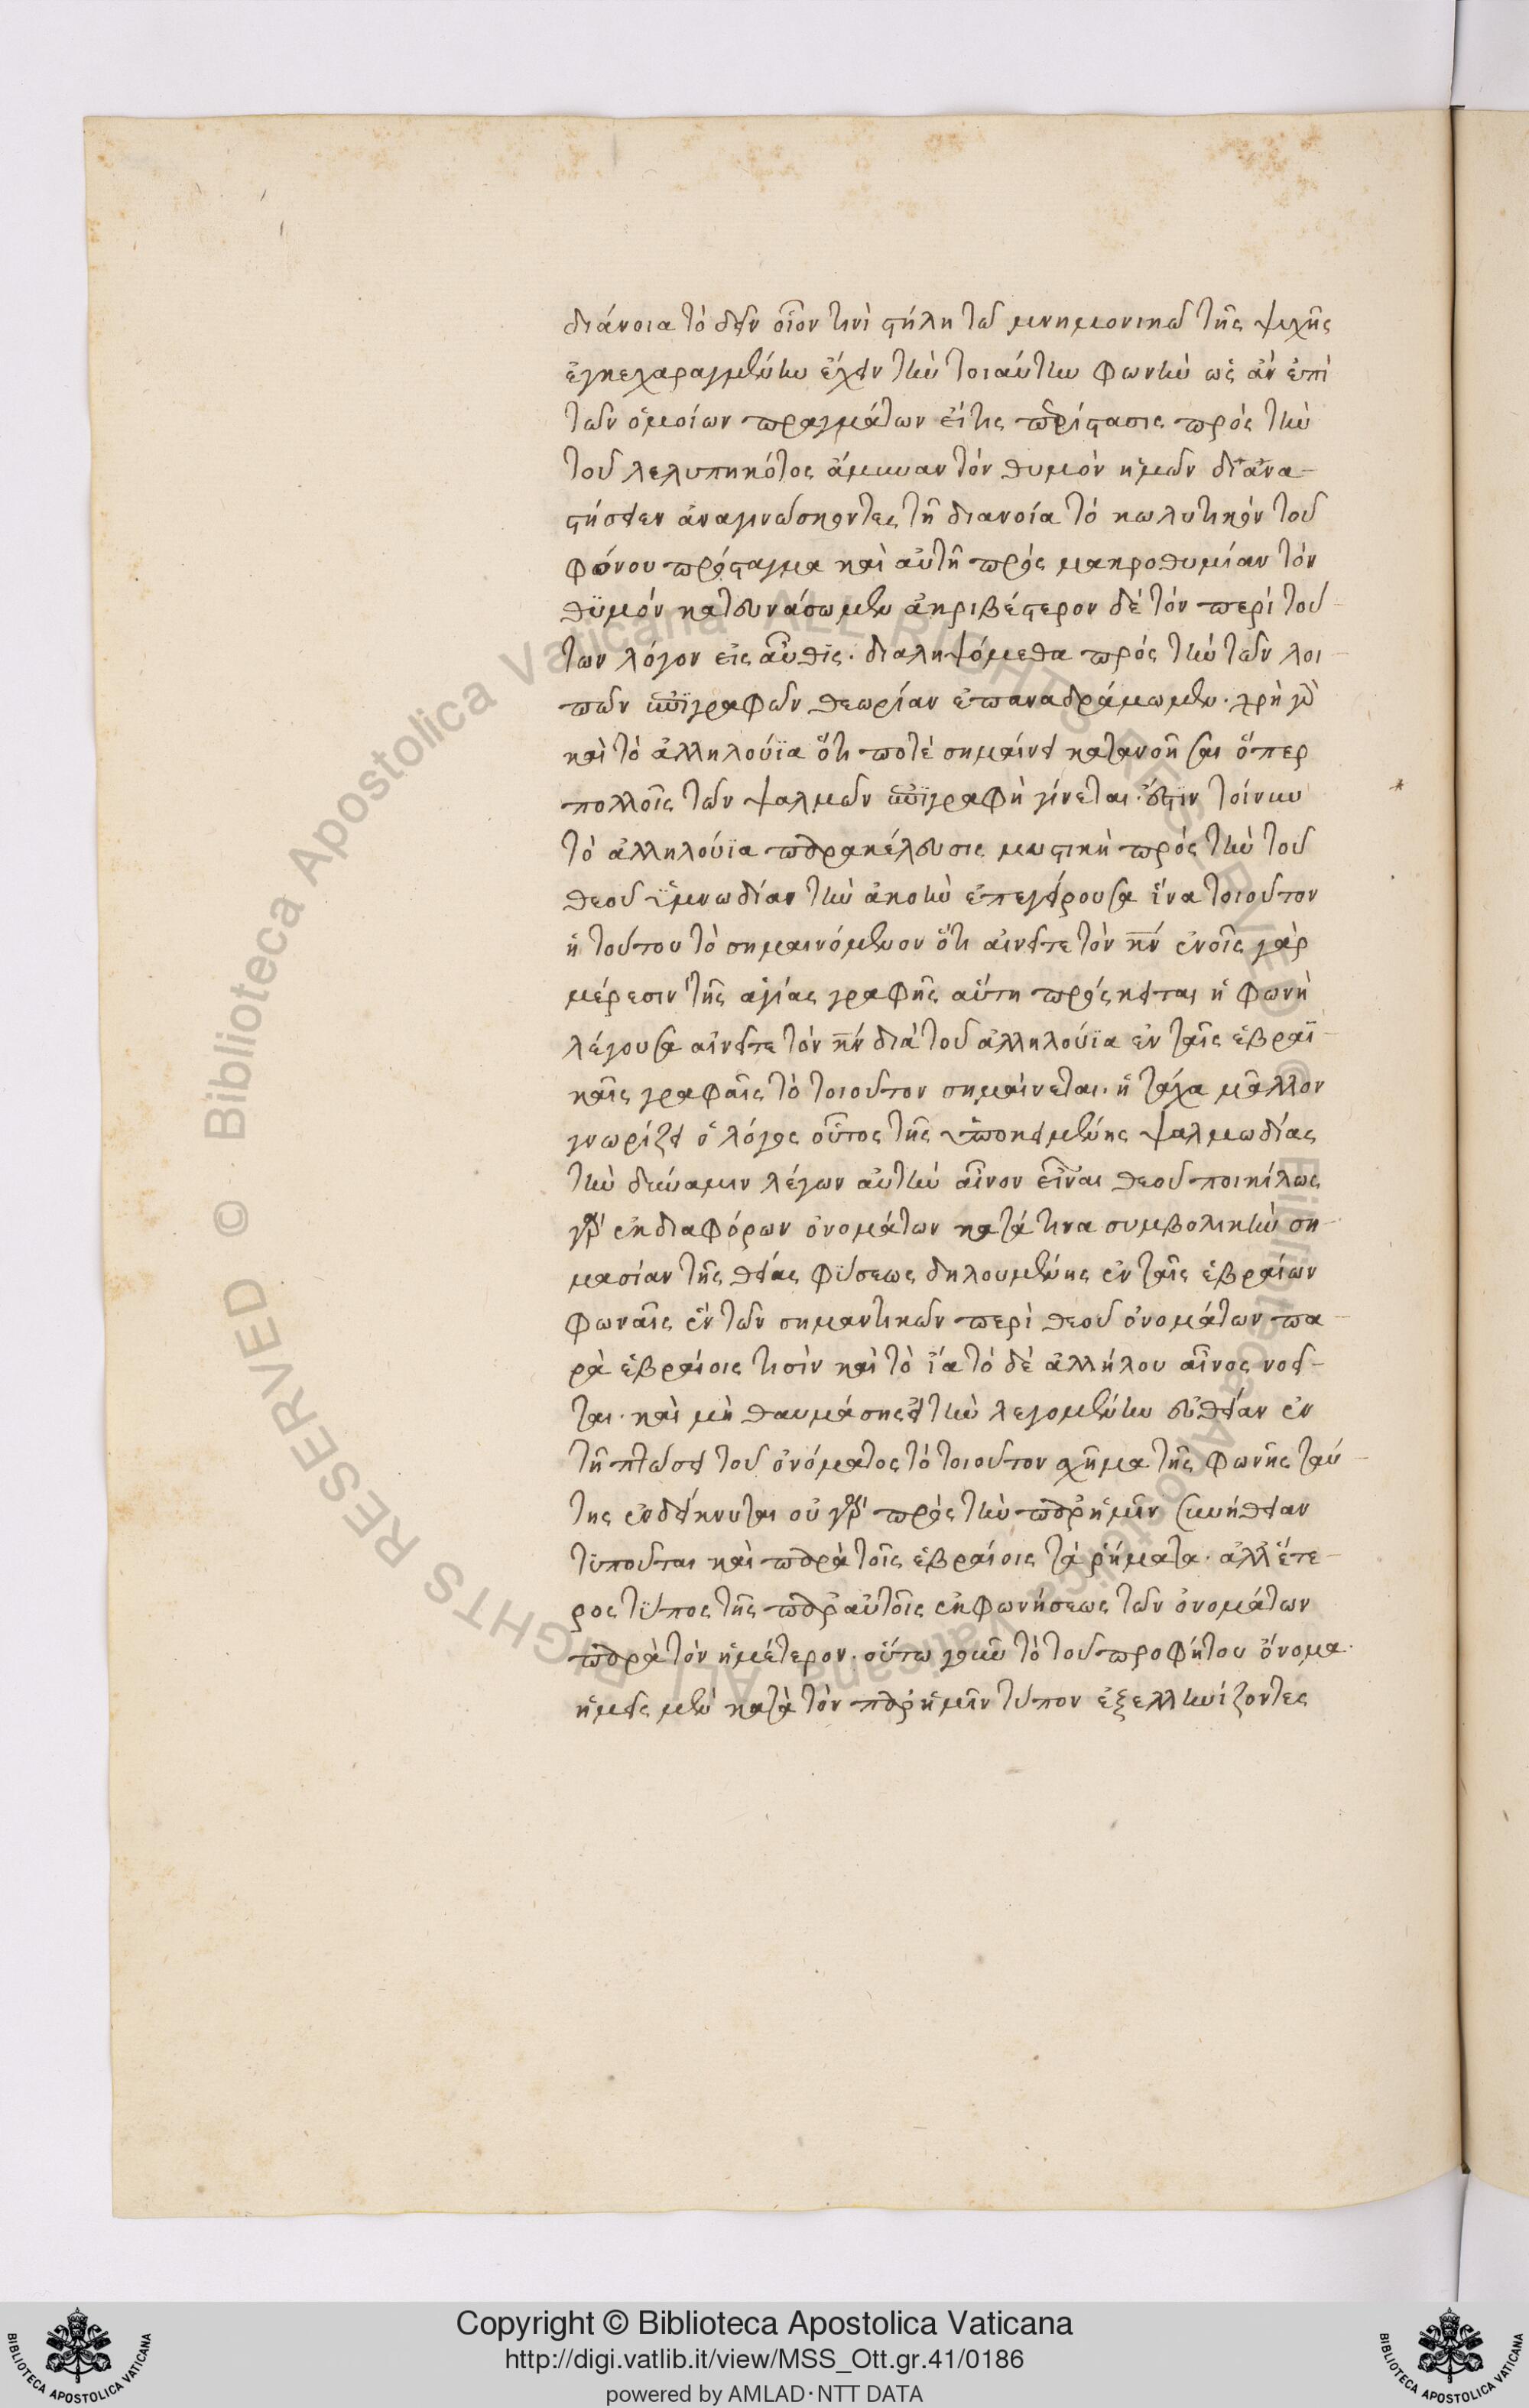 διάνοια τὸ δεῖν οἷόν τινι στήλη τῶ μνημονικῶ τῆς ψυχῆς
ἐγκεχαραγμένην ἔχειν τὴν τοιαύτην φωνὴν ὡς ἂν ἐπὶ
τῶν ὁμοίων πραγμάτων εἴ τις περίστασις πρὸς τὴν
τοῦ λελυπηκότος ἄμυναν τὸν θυμὸν ἡμῶν διανα-
στήσειεν ἀναγινώσκοντες τῆ διανοία τὸ κωλυτικὸν τοῦ
φόνου πρόσταγμα καὶ αὐτῆ πρὸς μακροθυμίαν τὸν
θϋμὸν κατευνάσωμεν ἀκριβέστερον δὲ τὸν περὶ τού-
των λόγον εἰς αὖθις. διαληψόμεθα πρὸς τὴν τῶν λοι-
πῶν ἐπϊγραφῶν θεωρίαν ἐπαναδράμωμεν. χρὴ γὰρ
καὶ τὸ ἀλληλούϊα ὅτι ποτὲ σημαίνει κατανοῆσαι ὅπερ
πολλοῖς τῶν ψαλμῶν ἐπϊγραφὴ γίνεται. ἔστιν τοίνυν
τὸ ἀλληλούϊα παρακέλευσις μυστικὴ πρὸς τὴν τοῦ
θεοῦ ὑμνωδίαν τὴν ἀκοὴν ἐπεγείρουσα ἵνα τοιοῦτον
ἦ τούτου τὸ σημαινόμενον ὅτι αἰνεῖτε τὸν κ̅ν̅ ἐν οἷς γὰρ
μέρεσιν τῆς ἁγίας γραφῆς αὕτη πρόσκειται ἡ φωνὴ
λέγουσα αἰνεῖτε τὸν κ̅ν̅ διὰ τοῦ ἀλληλούϊα ἐν ταῖς ἑβραϊ-
καῖς γραφαῖς τὸ τοιοῦτον σημαίνεται. ἢ τάχα μᾶλλον
γνωρίζει ὁ λόγος οὗτος τῆς ὑποκειμένης ψαλμωδίας
τὴν δύναμιν λέγων αὐτὴν αἶνον εἶναι θεοῦ ποικίλως
γὰρ ἐκ διαφόρων ὀνομάτων κατά τινα συμβολικὴν ση-
μασίαν τῆς θείας φύσεως δηλουμένης ἐν ταῖς ἑβραίων
φωναῖς ἓν τῶν σημαντικῶν περὶ θεοῦ ὀνομάτων πα-
ρὰ ἑβραίοις τισὶν καὶ τὸ ἴα τὸ δὲ ἀλλήλου αἶνος νοεῖ-
ται. καὶ μὴ θαυμάσης εἰ τὴν λεγομένην εὐθεῖαν ἐν
τῆ πτώσει τοῦ ὀνόματος τὸ τοιοῦτον σχῆμα τῆς φωνῆς ταύ-
της ἐνδείκνυται οὐ γὰρ πρὸς τὴν παρ' ἡμῖν συνήθειαν
τυποῦται καὶ παρὰ τοῖς ἑβραίοις τὰ ῥήματα. ἀλλ' ἕτε-
ρος τύπος τῆς παρ' αὐτοῖς ἐκφωνήσεως τῶν ὀνομάτων
παρὰ τὸν ἡμέτερον. οὕτω γοῦν τὸ τοῦ προφήτου ὄνομα.
ἡμεῖς μὲν κατὰ τὸν παρ' ἡμῖν τύπον ἐξελληνίζοντες
Copyright © Biblioteca Apostolica Vaticana
http://digi.vatlib.it/view/MSS_Ott.gr.41/0186
powered by AMLAD·NTT DATA